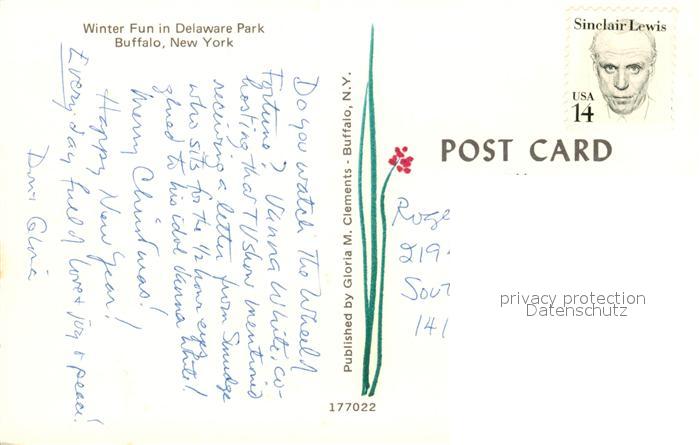 Winter Fun in Delaware Park
Buffalo, New York
Do you watch The Wheel of
Fortune? Vanna White, co-
hosting that TV show mentioned
receiving a letter from Smudge
who sits for the 1/2 hour eyes
glued to his idol Vanna White!
Merry Christmas!
Happy New Year!
Every day full of love & joy & peace!
Gloria
Published by Gloria M. Clements - Buffalo, N.Y.
177022
Sinclair Lewis
USA
14
POST CARD
219
141
privacy protection
Datenschutz